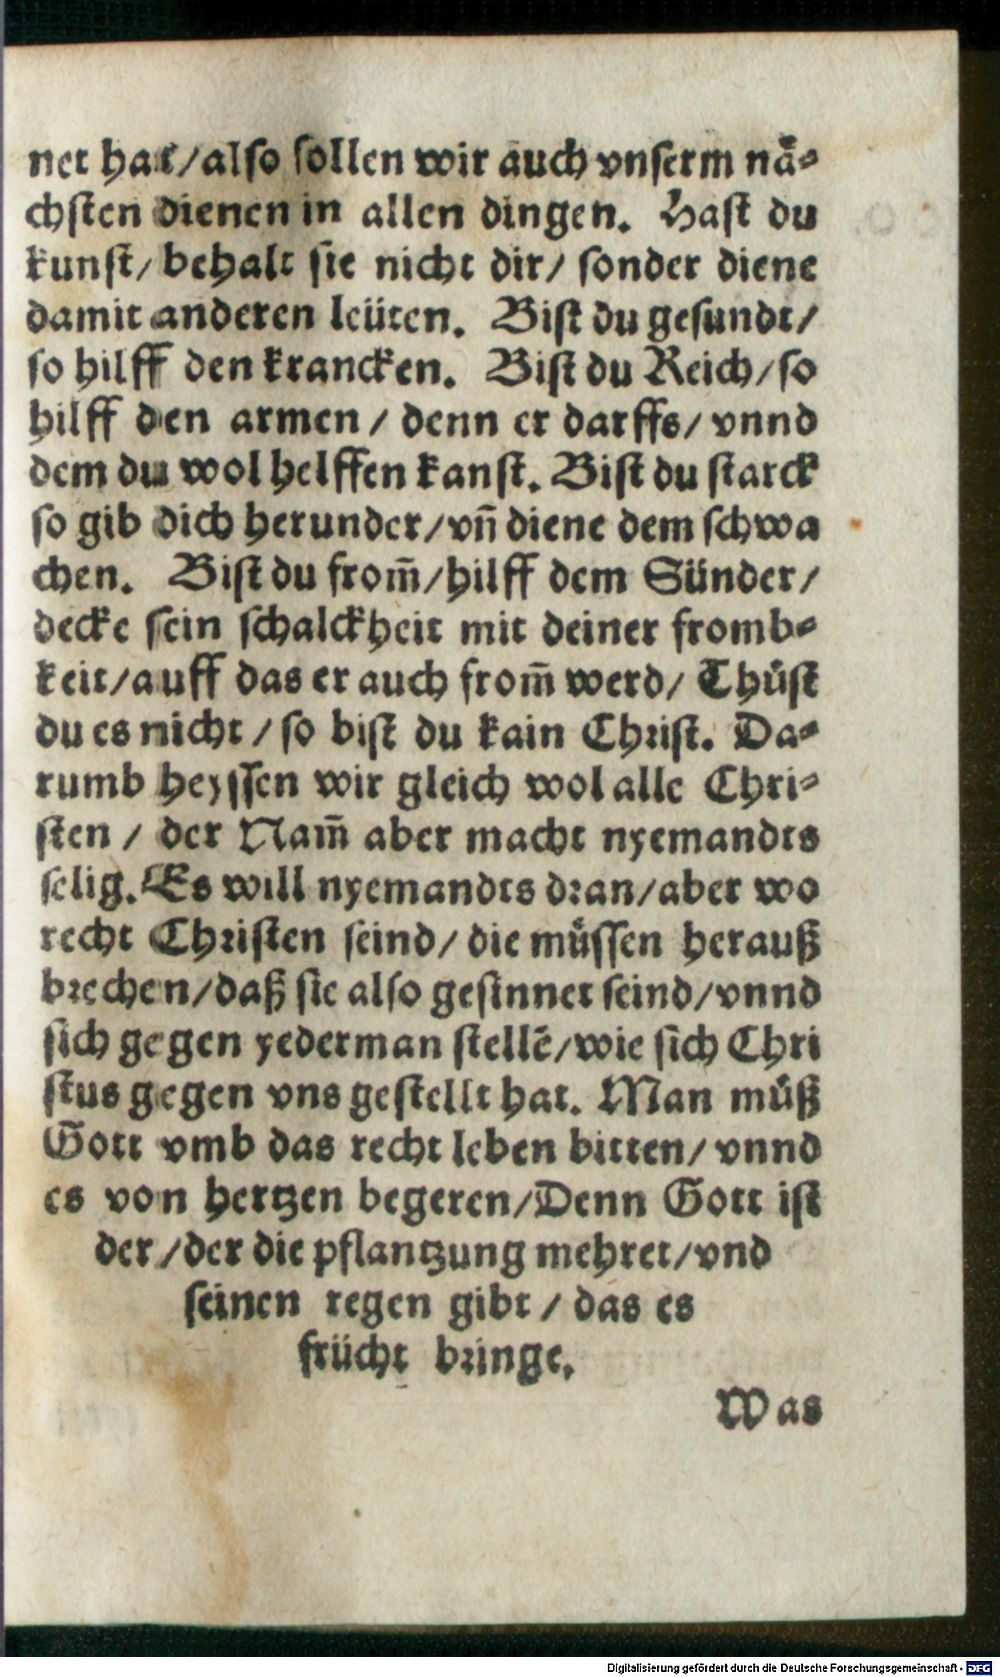 net hat/also sollen wir auch vnserm nä⸗
chsten dienen in allen dingen. Hast du
kunst/ behalt sie nicht dir/ sonder diene
damit anderen leüten. Bist du gesundt/
so hilff den krancken. Bist du Reich/so
hilff den armen / denn er darffs/ vnnd
dem du wol helffen kanst. Bist du starck
so gib dich herunder/vñ diene dem schwa
chen. Bist du from̃/hilff dem Sünder/
decke sein schalckheit mit deiner fromb⸗
keit/auff das er auch from̃ werd/ Thůst
du es nicht / so bist du kain Christ. Da⸗
rumb heyssen wir gleich wol alle Chri⸗
sten / der Nam̃ aber macht nyemandts
selig. Es will nyemandts dran/aber wo
recht Christen seind/ die müssen herauß
brechen/daß sie also gesinnet seind/vnnd
sich gegen yederman stellẽ/wie sich Chri
stus gegen vns gestellt hat. Man můß
Gott vmb das recht leben bitten/ vnnd
es von hertzen begeren/Denn Gott ist
der /der die pflantzung mehret/vnd
seinen regen gibt / das es
frücht bringe.
Was
Digitalisierung gefördert durch die Deutsche Forschungsgemeinschaft - DFG